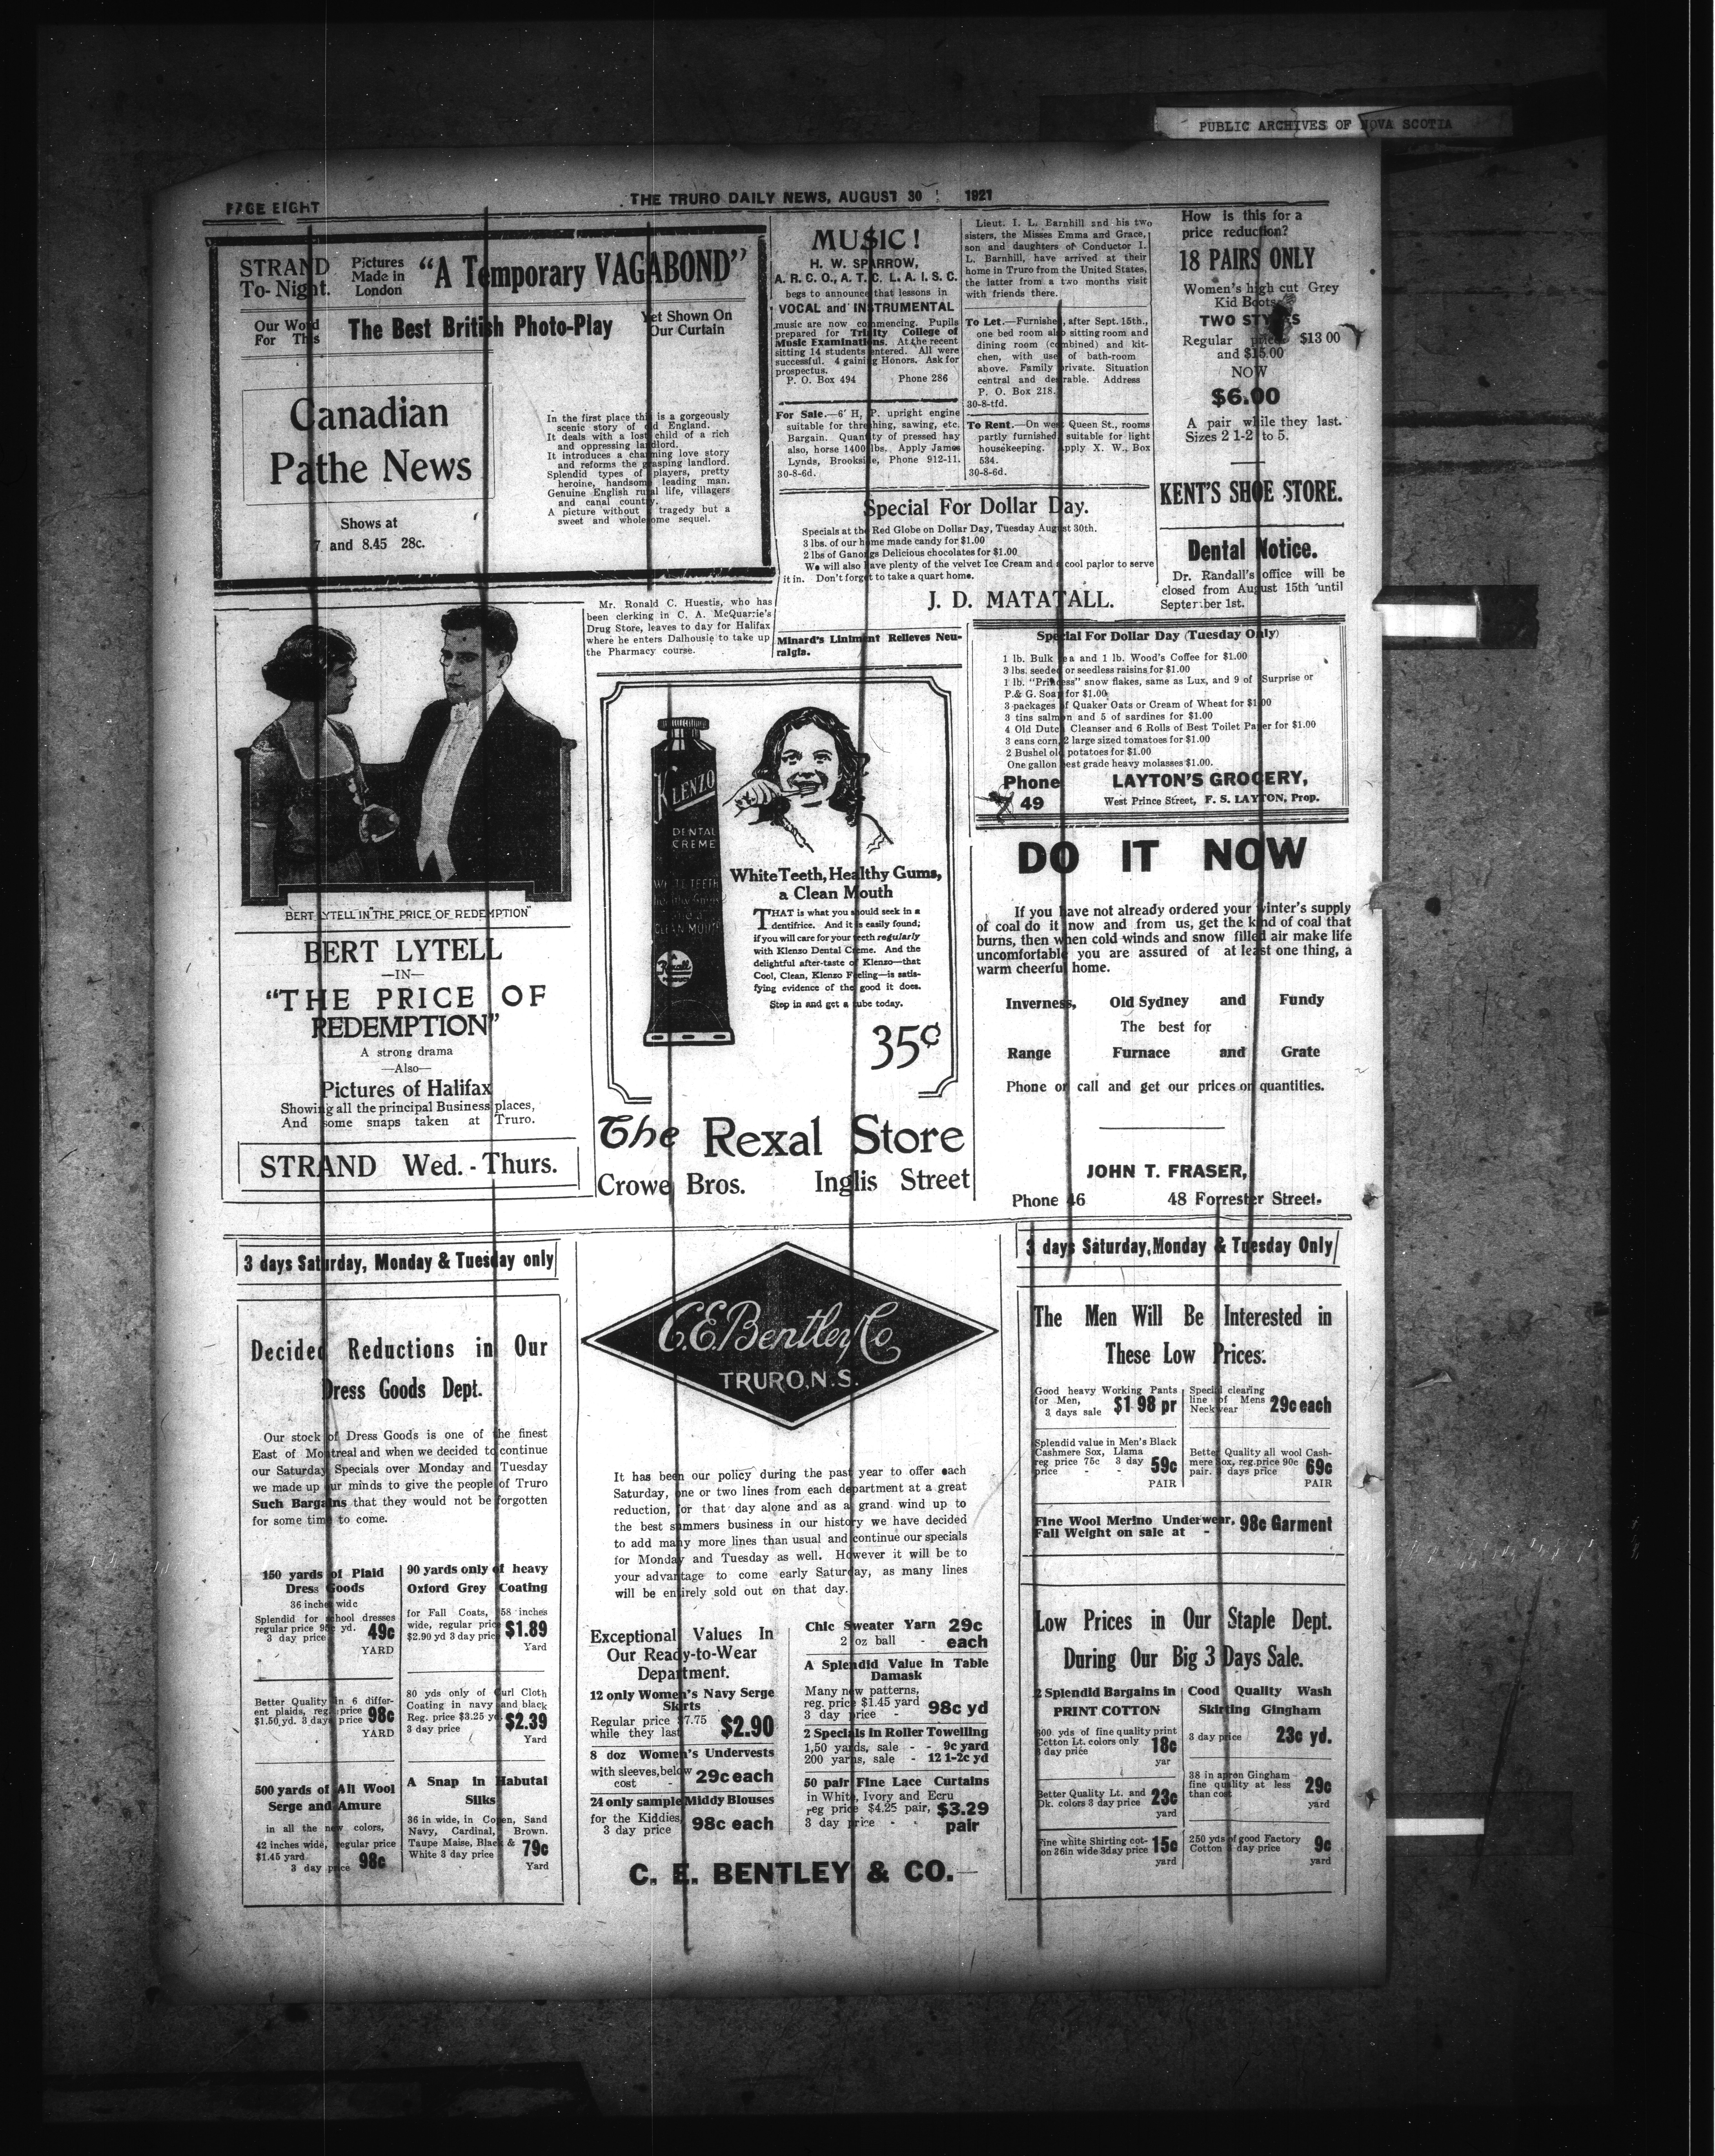 PUBLIC ARCHIVES OF NOVA SCOTIA
PAGE EIGHT
THE TRURO DAILY NEWS, AUGUST 30 1921
STRAND
To-Night.
Pictures
Made in
London
"A Temporary VAGABOND"
Our Word
For This
The Best British Photo-Play
Yet Shown On
Our Curtain
Canadian
Pathe News
Shows at
7 and 8.45 28c.
In the first place this is a gorgeously
scenic story of old England.
It deals with a lost child of a rich
and oppressing landlord.
It introduces a charming love story
and reforms the grasping landlord.
Splendid types of players, pretty
heroine, handsome leading man.
Genuine English rural life, villagers
and canal country.
A picture without tragedy but a
sweet and wholesome sequel.
MUSIC!
H. W. SPARROW,
A. R. C. O., A. T. C. L. A. I. S. C.
begs to announce that lessons in
VOCAL and INSTRUMENTAL
music are now commencing. Pupils
prepared for Trinity College of
Music Examinations. At the recent
sitting 14 students entered. All were
successful. 4 gaining Honors. Ask for
prospectus.
P. O. Box 494 Phone 286
For Sale.—6 H. P. upright engine
suitable for threshing, sawing, etc.
Bargain. Quantity of pressed hay
also, horse 1400 lbs. Apply James
Lynds, Brookside, Phone 912-11.
30-8-6d.
Lieut. I. L. Barnhill and his two
sisters, the Misses Emma and Grace,
son and daughters of Conductor I.
L. Barnhill, have arrived at their
home in Truro from the United States,
the latter from a two months visit
with friends there.
To Let.—Furnished, after Sept. 15th.,
one bed room also sitting room and
dining room (combined) and kit-
chen, with use of bath-room
above. Family private. Situation
central and desirable. Address
P. O. Box 218.
30-8-tfd.
To Rent.—On west Queen St., rooms
partly furnished suitable for light
housekeeping. Apply X. W., Box
534.
30-8-6d.
How is this for a
price reduction?
18 PAIRS ONLY
Women's high cut Grey
Kid Boots
TWO STYLES
Regular price $13 00
and $15.00
NOW
$6.00
A pair while they last.
Sizes 2 1-2 to 5.
KENT'S SHOE STORE.
Special For Dollar Day.
Specials at the Red Globe on Dollar Day, Tuesday August 30th.
3 lbs. of our home made candy for $1.00
2 lbs of Ganongs Delicious chocolates for $1.00
We will also have plenty of the velvet Ice Cream and a cool parlor to serve
it in. Don't forget to take a quart home.
J. D. MATATALL.
Dental Notice.
Dr. Randall's office will be
closed from August 15th until
September 1st.
Mr. Ronald C. Huestis, who has
been clerking in C. A. McQuarrie's
Drug Store, leaves to day for Halifax
where he enters Dalhousie to take up
the Pharmacy course.
Minard's Liniment Relieves Neu-
ralgia.
Special For Dollar Day (Tuesday Only)
1 lb. Bulk Tea and 1 lb. Wood's Coffee for $1.00
3 lbs. seeded or seedless raisins for $1.00
1 lb. "Princess" snow flakes, same as Lux, and 9 of Surprise or
P.& G. Soap for $1.00
3 packages of Quaker Oats or Cream of Wheat for $1.00
3 tins salmon and 5 of sardines for $1.00
4 Old Dutch Cleanser and 6 Rolls of Best Toilet Paper for $1.00
3 cans corn, 2 large sized tomatoes for $1.00
2 Bushel old potatoes for $1.00
One gallon best grade heavy molasses $1.00.
Phone
49
LAYTON'S GROCERY,
West Prince Street, F. S. LAYTON, Prop.
BERT LYTELL IN "THE PRICE OF REDEMPTION"
BERT LYTELL
—IN—
"THE PRICE OF
REDEMPTION"
A strong drama
—Also—
Pictures of Halifax
Showing all the principal Business places,
And some snaps taken at Truro.
STRAND Wed. - Thurs.
KLENZO
DENTAL
CREME
WHITE TEETH
Healthy Gums
and a
CLEAN MOUTH
Rexall
White Teeth, Healthy Gums,
a Clean Mouth
THAT is what you should seek in a
dentifrice. And it is easily found;
if you will care for your teeth regularly
with Klenzo Dental Creme. And the
delightful after-taste of Klenzo—that
Cool, Clean, Klenzo Feeling—is satis-
fying evidence of the good it does.
Step in and get a tube today.
35¢
The Rexal Store
Crowe Bros. Inglis Street
DO IT NOW
If you have not already ordered your winter's supply
of coal do it now and from us, get the kind of coal that
burns, then when cold winds and snow filled air make life
uncomfortable you are assured of at least one thing, a
warm cheerful home.
Inverness, Old Sydney and Fundy
The best for
Range Furnace and Grate
Phone or call and get our prices on quantities.
JOHN T. FRASER,
Phone 46 48 Forrester Street.
3 days Saturday, Monday & Tuesday only
Decided Reductions in Our
Dress Goods Dept.
Our stock of Dress Goods is one of the finest
East of Montreal and when we decided to continue
our Saturday Specials over Monday and Tuesday
we made up our minds to give the people of Truro
Such Bargains that they would not be forgotten
for some time to come.
150 yards of Plaid
Dress Goods
36 inches wide
Splendid for school dresses
regular price 95c yd.
3 day price 49c
YARD
Better Quality in 6 differ-
ent plaids, reg. price
$1.50 yd. 3 days price 98c
YARD
500 yards of All Wool
Serge and Amure
in all the new colors,
42 inches wide, regular price
$1.45 yard
3 day price 98c
90 yards only of heavy
Oxford Grey Coating
for Fall Coats, 58 inches
wide, regular price
$2.90 yd 3 day price $1.89
Yard
80 yds only of Curl Cloth
Coating in navy and black
Reg. price $3.25 yd
3 day price $2.39
Yard
A Snap in Habutai
Silks
36 in wide, in Copen, Sand
Navy, Cardinal, Brown.
Taupe Maise, Black &
White 3 day price 79c
Yard
C.E. Bentley Co
TRURO, N.S.
It has been our policy during the past year to offer each
Saturday, one or two lines from each department at a great
reduction, for that day alone and as a grand wind up to
the best summers business in our history we have decided
to add many more lines than usual and continue our specials
for Monday and Tuesday as well. However it will be to
your advantage to come early Saturday, as many lines
will be entirely sold out on that day.
Exceptional Values In
Our Ready-to-Wear
Department.
12 only Women's Navy Serge
Skirts
Regular price $7.75
while they last $2.90
8 doz Women's Undervests
with sleeves, below
cost - 29c each
24 only sample Middy Blouses
for the Kiddies,
3 day price 98c each
Chic Sweater Yarn 29c
2 oz ball - each
A Splendid Value in Table
Damask
Many new patterns,
reg. price $1.45 yard
3 day price - 98c yd
2 Specials in Roller Towelling
1,50 yards, sale - - 9c yard
200 yards, sale - 12 1-2c yd
50 pair Fine Lace Curtains
in White, Ivory and Ecru
reg price $4.25 pair, $3.29
3 day price - - pair
C. E. BENTLEY & CO.
3 days Saturday, Monday & Tuesday Only
The Men Will Be Interested in
These Low Prices:
Good heavy Working Pants
for Men,
3 days sale $1 98 pr
Special clearing
line of Mens
Neckwear 29c each
Splendid value in Men's Black
Cashmere Sox, Llama
reg price 75c 3 day
price - - 59c
PAIR
Better Quality all wool Cash-
mere Sox, reg.price 90c
pair. 3 days price 69c
PAIR
Fine Wool Merino Underwear,
Fall Weight on sale at - 98c Garment
Low Prices in Our Staple Dept.
During Our Big 3 Days Sale.
2 Splendid Bargains in
PRINT COTTON
600 yds of fine quality print
Cotton Lt. colors only
3 day price 18c
yar
Better Quality Lt. and
Dk. colors 3 day price 23c
yard
Fine white Shirting cot-
ton 36in wide 3day price 15c
yard
Good Quality Wash
Skirting Gingham
3 day price 23c yd.
38 in apron Gingham
fine quality at less
than cost 29c
yard
250 yds of good Factory
Cotton 3 day price 9c
yard